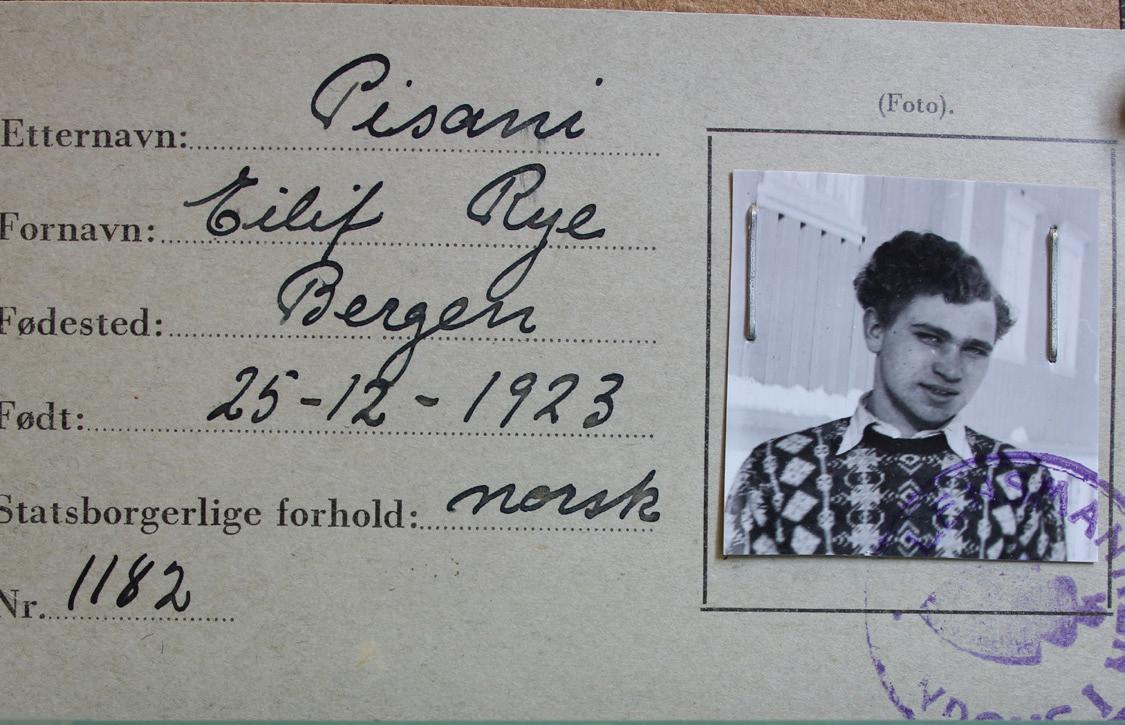 Etternavn: Pisani
(Foto).
Fornavn: Eilif Rye
Fødested: Bergen
Født: 25-12-1923
Statsborgerlige forhold: norsk
Nr. 1182